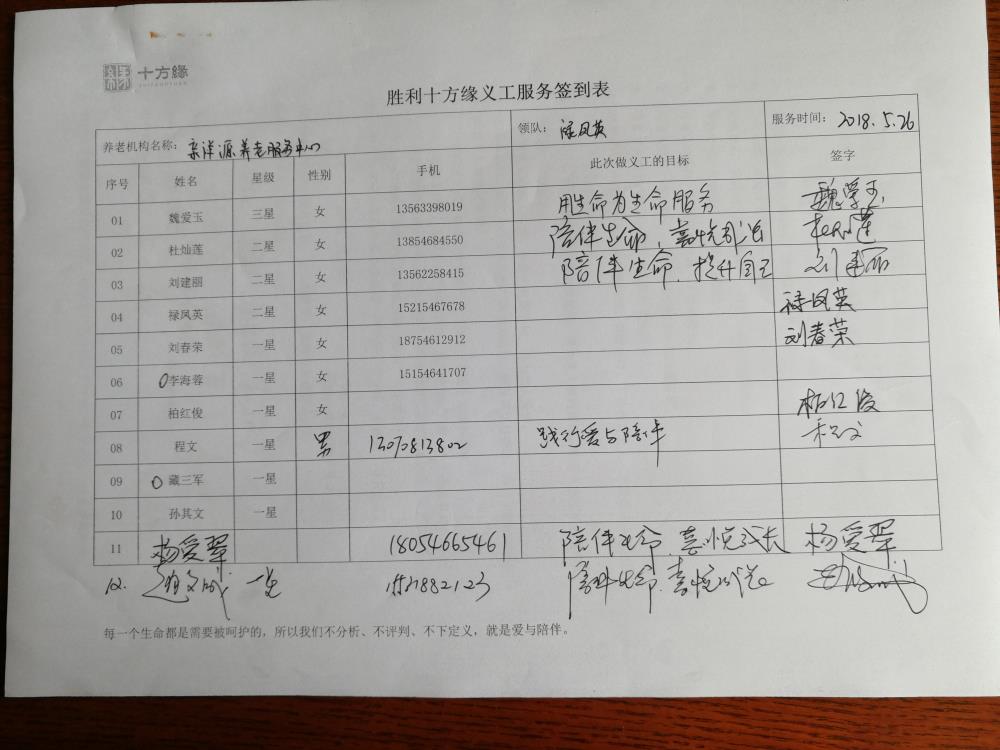 十方緣
胜利十方缘义工服务签到表
养老机构名称： 养老服务中心 领队： 禄凤英 服务时间： 2018.5.26
序号 姓名 星级 性别 手机 此次做义工的目标 签字
01 魏爱玉 三星 女 13563398019 用生命为生命服务 魏爱玉
02 杜灿莲 二星 女 13854684550 陪伴生命，喜悦 杜灿莲
03 刘建丽 二星 女 13562258415 陪伴生命，提升自己 刘建丽
04 禄凤英 二星 女 15215467678 禄凤英
05 刘春荣 一星 女 18754612912 刘春荣
06 李海蓉 一星 女 15154641707
07 柏红俊 一星 女 柏红俊
08 程文 一星 男 13070813802 践行爱与陪伴 程文
09 藏三军 一星
10 孙其文 一星
11 杨爱翠 18054665461 陪伴生命，喜悦成长 杨爱翠
12. 一星 陪伴生命，喜悦成长
每一个生命都是需要被呵护的，所以我们不分析、不评判、不下定义，就是爱与陪伴。